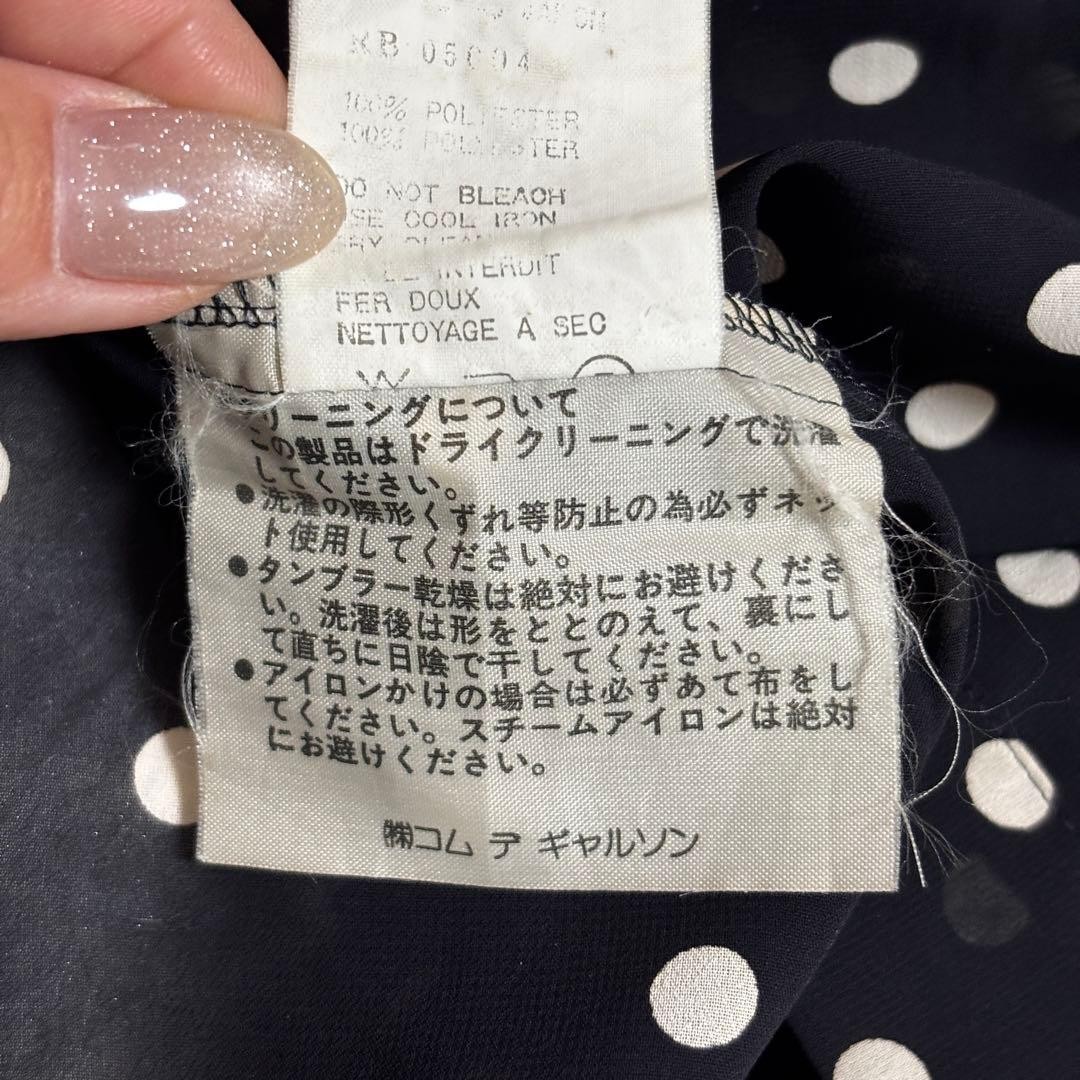 RB 05004
100% POLYESTER
100% POLYESTER
DO NOT BLEACH
USE COOL IRON
INTERDIT
FER DOUX
NETTOYAGE A SEC
クリーニングについて
この製品はドライクリーニングで洗濯
してください。
●洗濯の際形くずれ等防止の為必ずネッ
ト使用してください。
●タンブラー乾燥は絶対にお避けくださ
い。洗濯後は形をととのえて、裏にし
て直ちに日陰で干してください。
●アイロンかけの場合は必ずあて布をし
てください。スチームアイロンは絶対
にお避けください。
㈱コム デ ギャルソン